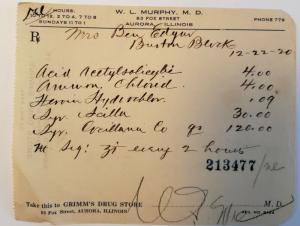 HOUR:
10 TO 12, 2 TO 4, 7 TO 8
SUNDAYS 11 TO 1
W. L. MURPHY, M. D.
83 FOX STREET
AURORA - ILLINOIS
PHONE 775
℞
Mrs Ben Edgar
Burton Block
12-22-20
Acid Acetylsalicylic 4.00
Ammon Chlorid 4.00
Heroin Hydrochlor. .09
Syr. Scilla 30.00
Syr. Cocillana Co qs 120.00
M Sig: ʒi every 2 hours
213477
M. D.
Take this to GRIMM'S DRUG STORE
AURORA, ILLINOIS